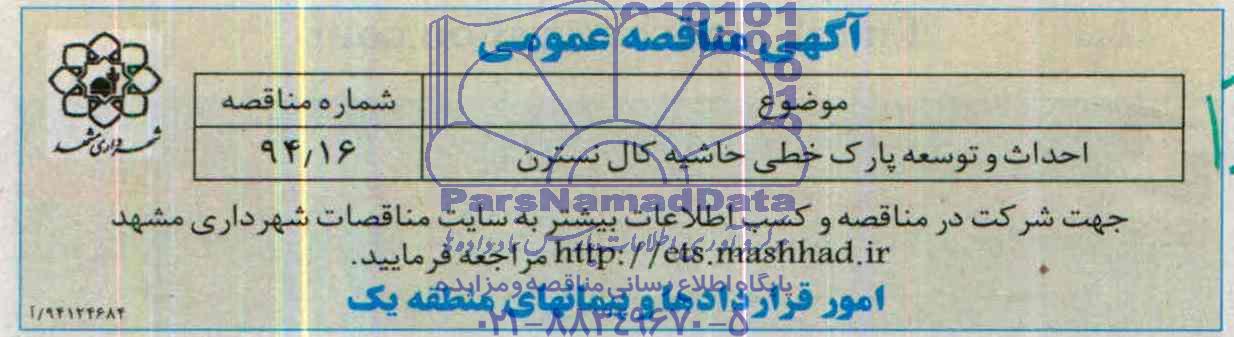 آگهی مناقصه عمومی
موضوع	شماره مناقصه
احداث و توسعه پارک خطی حاشیه کال نسترن	۹۴٫۱۶
شهرداری مشهد
جهت شرکت در مناقصه و کسب اطلاعات بیشتر به سایت مناقصات شهرداری مشهد
http://ets.mashhad.ir مراجعه فرمایید.
امور قراردادها و پیمانهای منطقه یک
۹۴۱۲۴۶۸۴/آ
010101
ParsNamadData
پایگاه اطلاع رسانی مناقصه و مزایده
۰۲۱-۸۸۳۴۹۶۷۰-۵